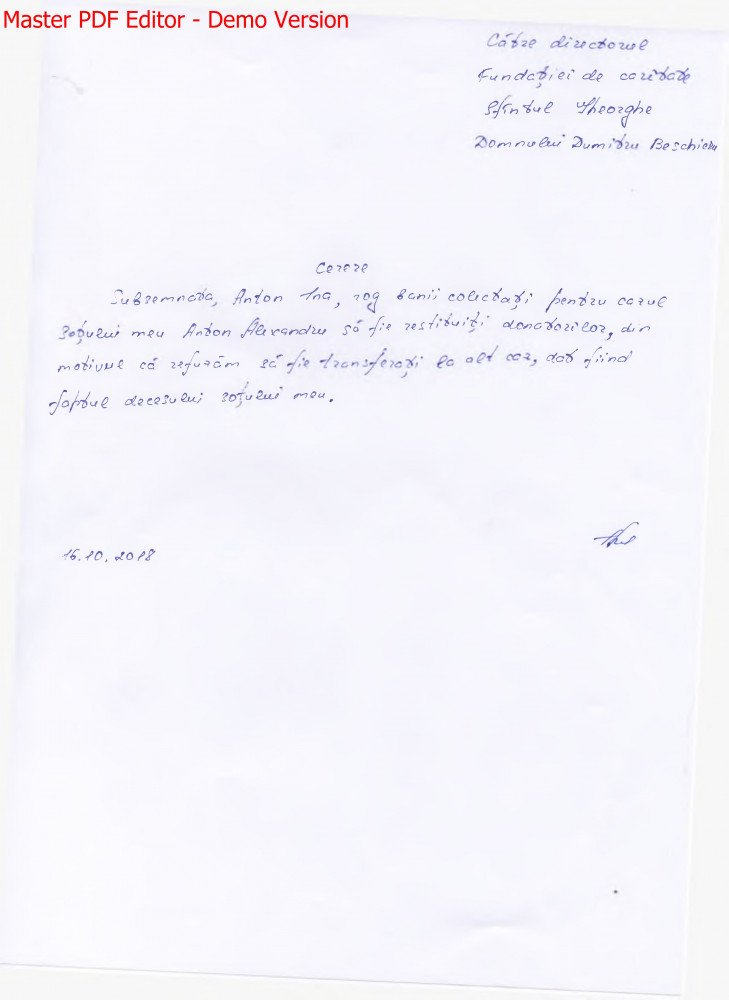 Master PDF Editor - Demo Version
Către directorul
Fundației de caritate
Sfîntul Gheorghe
Domnului Dumitru Beschieru
Cerere
Subsemnata, Anton Ina, rog banii colectați pentru cazul
soțului meu Anton Alexandru să fie restituiți donatorilor, din
motivul că refuzăm să fie transferați la alt caz, dat fiind
faptul decesului soțului meu.
16.10.2018